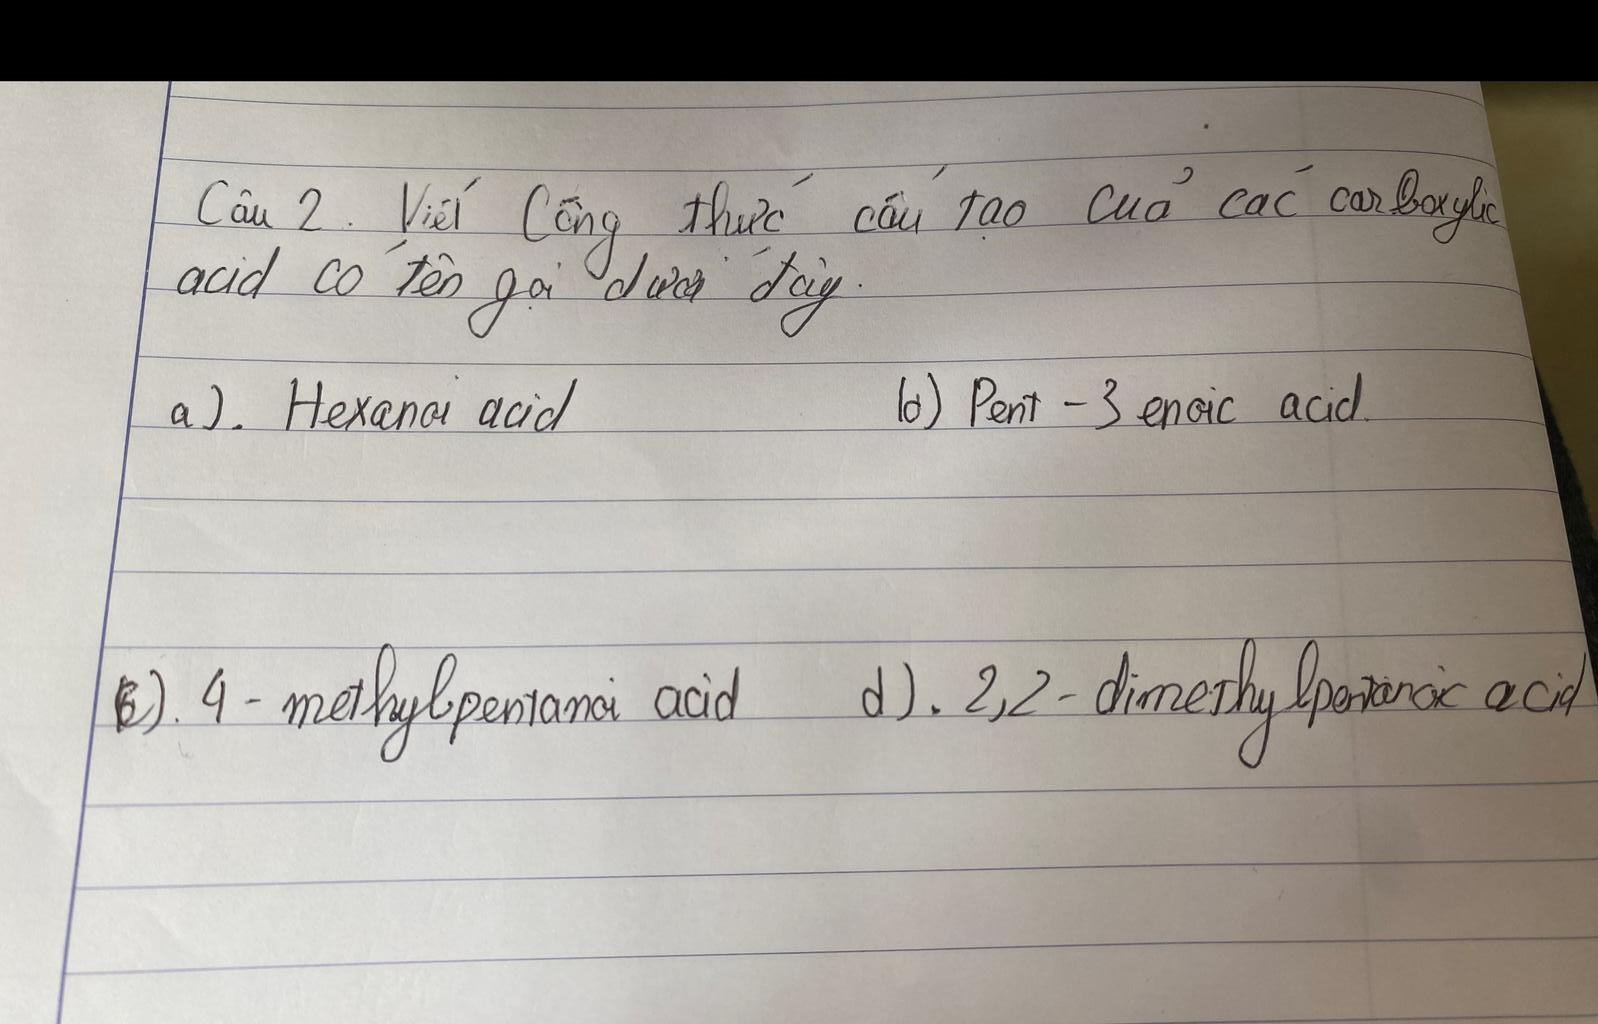 Câu 2. Viết Công thức cấu tạo của các carboxylic
acid có tên gọi dưới đây.
a). Hexanoi acid b) Pent - 3 enoic acid.
c). 4 - methylpentanoi acid d). 2,2 - dimethylpentanoic acid